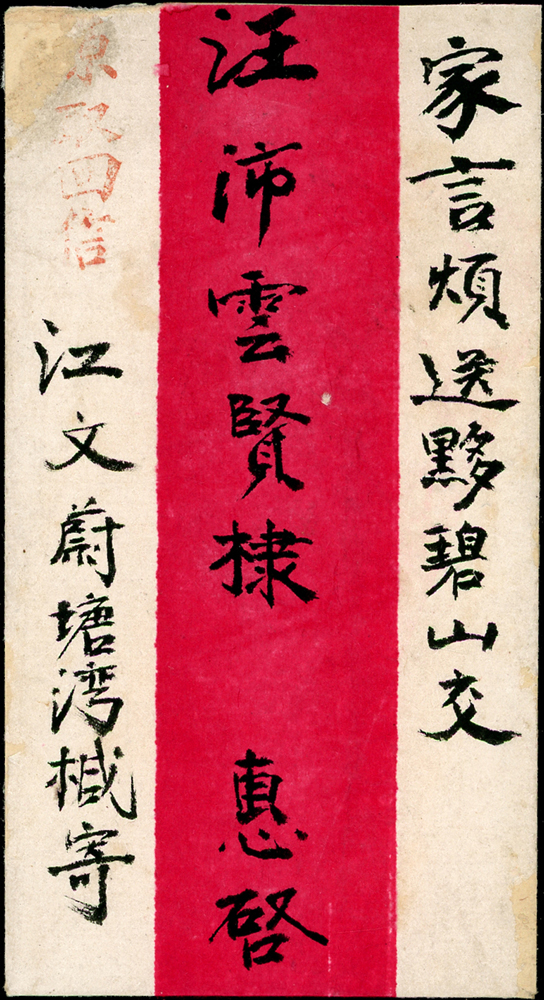 家言煩送黟碧山交
汪沛雲賢棣 惠啓
江文蔚塘湾椷寄
回信